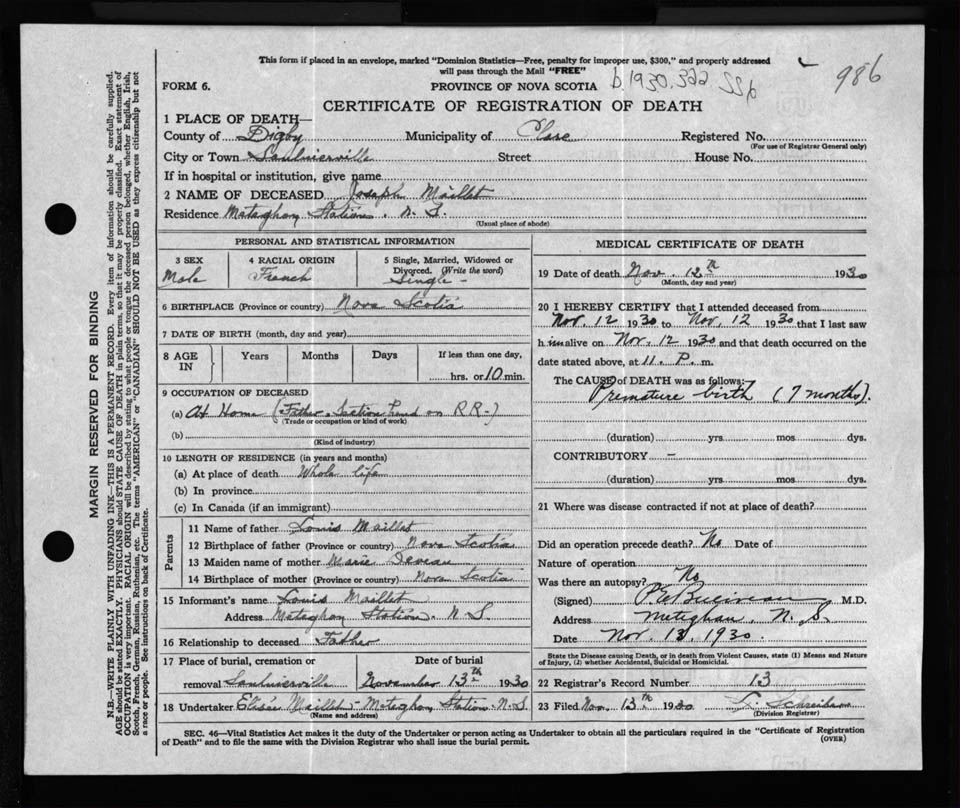 This form if placed in an envelope, marked "Dominion Statistics—Free, penalty for improper use, $300," and properly addressed
will pass through the Mail "FREE"
986
FORM 6.
PROVINCE OF NOVA SCOTIA
b.1930.322
CERTIFICATE OF REGISTRATION OF DEATH
1 PLACE OF DEATH—
County of Digby Municipality of Clare Registered No.
(For use of Registrar General only)
City or Town Saulnierville Street House No.
If in hospital or institution, give name
2 NAME OF DECEASED Joseph Maillet
Residence Metaghan Station, N.S.
(Usual place of abode)
PERSONAL AND STATISTICAL INFORMATION
3 SEX 4 RACIAL ORIGIN 5 Single, Married, Widowed or
Divorced. (Write the word)
Male French Single -
6 BIRTHPLACE (Province or country) Nova Scotia
7 DATE OF BIRTH (month, day and year)
8 AGE IN Years Months Days If less than one day,
hrs. or 10 min.
9 OCCUPATION OF DECEASED
(a) At Home (Father - Section hand on R R -)
(Trade or occupation or kind of work)
(b)
(Kind of industry)
10 LENGTH OF RESIDENCE (in years and months)
(a) At place of death Whole life
(b) In province
(c) In Canada (if an immigrant)
Parents
11 Name of father Louis Maillet
12 Birthplace of father (Province or country) Nova Scotia
13 Maiden name of mother Marie Deveau
14 Birthplace of mother (Province or country) Nova Scotia
15 Informant's name Louis Maillet
Address Metaghan Station, N S
16 Relationship to deceased Father
17 Place of burial, cremation or Date of burial
removal Saulnierville November 13th 1930
18 Undertaker Elisée Maillet - Metaghan Station - N.S.
(Name and address)
MEDICAL CERTIFICATE OF DEATH
19 Date of death Nov. 12th 1930
(Month, day and year)
20 I HEREBY CERTIFY that I attended deceased from
Nov. 12 1930 to Nov. 12 1930 that I last saw
him alive on Nov. 12 1930 and that death occurred on the
date stated above, at 11. P. m.
The CAUSE of DEATH was as follows:
Premature birth (7 months).
(duration) yrs. mos. dys.
CONTRIBUTORY -
(duration) yrs. mos. dys.
21 Where was disease contracted if not at place of death?
Did an operation precede death? No Date of
Nature of operation
Was there an autopsy? No
(Signed) M.D.
Address Meteghan, N. S.
Date Nov 13, 1930.
State the Disease causing Death, or in death from Violent Causes, state (1) Means and Nature
of Injury, (2) whether Accidental, Suicidal or Homicidal.
22 Registrar's Record Number 13
23 Filed Nov. 13th 1930
(Division Registrar)
SEC. 46—Vital Statistics Act makes it the duty of the Undertaker or person acting as Undertaker to obtain all the particulars required in the "Certificate of Registration
of Death" and to file the same with the Division Registrar who shall issue the burial permit.
(OVER)
MARGIN RESERVED FOR BINDING
N.B.—WRITE PLAINLY WITH UNFADING INK—THIS IS A PERMANENT RECORD. Every item of information should be carefully supplied.
AGE should be stated EXACTLY. PHYSICIANS should STATE CAUSE OF DEATH in plain terms, so that it may be properly classified. Exact statement of
OCCUPATION is very important. RACIAL ORIGIN will be described by stating to what people or tongue the deceased person belonged, whether English, Irish,
Scotch, French, German, Russian, Ruthenian, etc. The terms "AMERICAN" or "CANADIAN" SHOULD NOT BE USED as they express citizenship but not
a race or people. See instructions on back of Certificate.